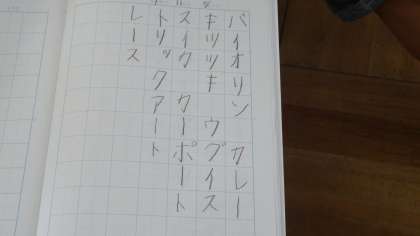 バイオリン カレー
キツツキ ウグイス
スイカ カーポート
トリックアート
レース